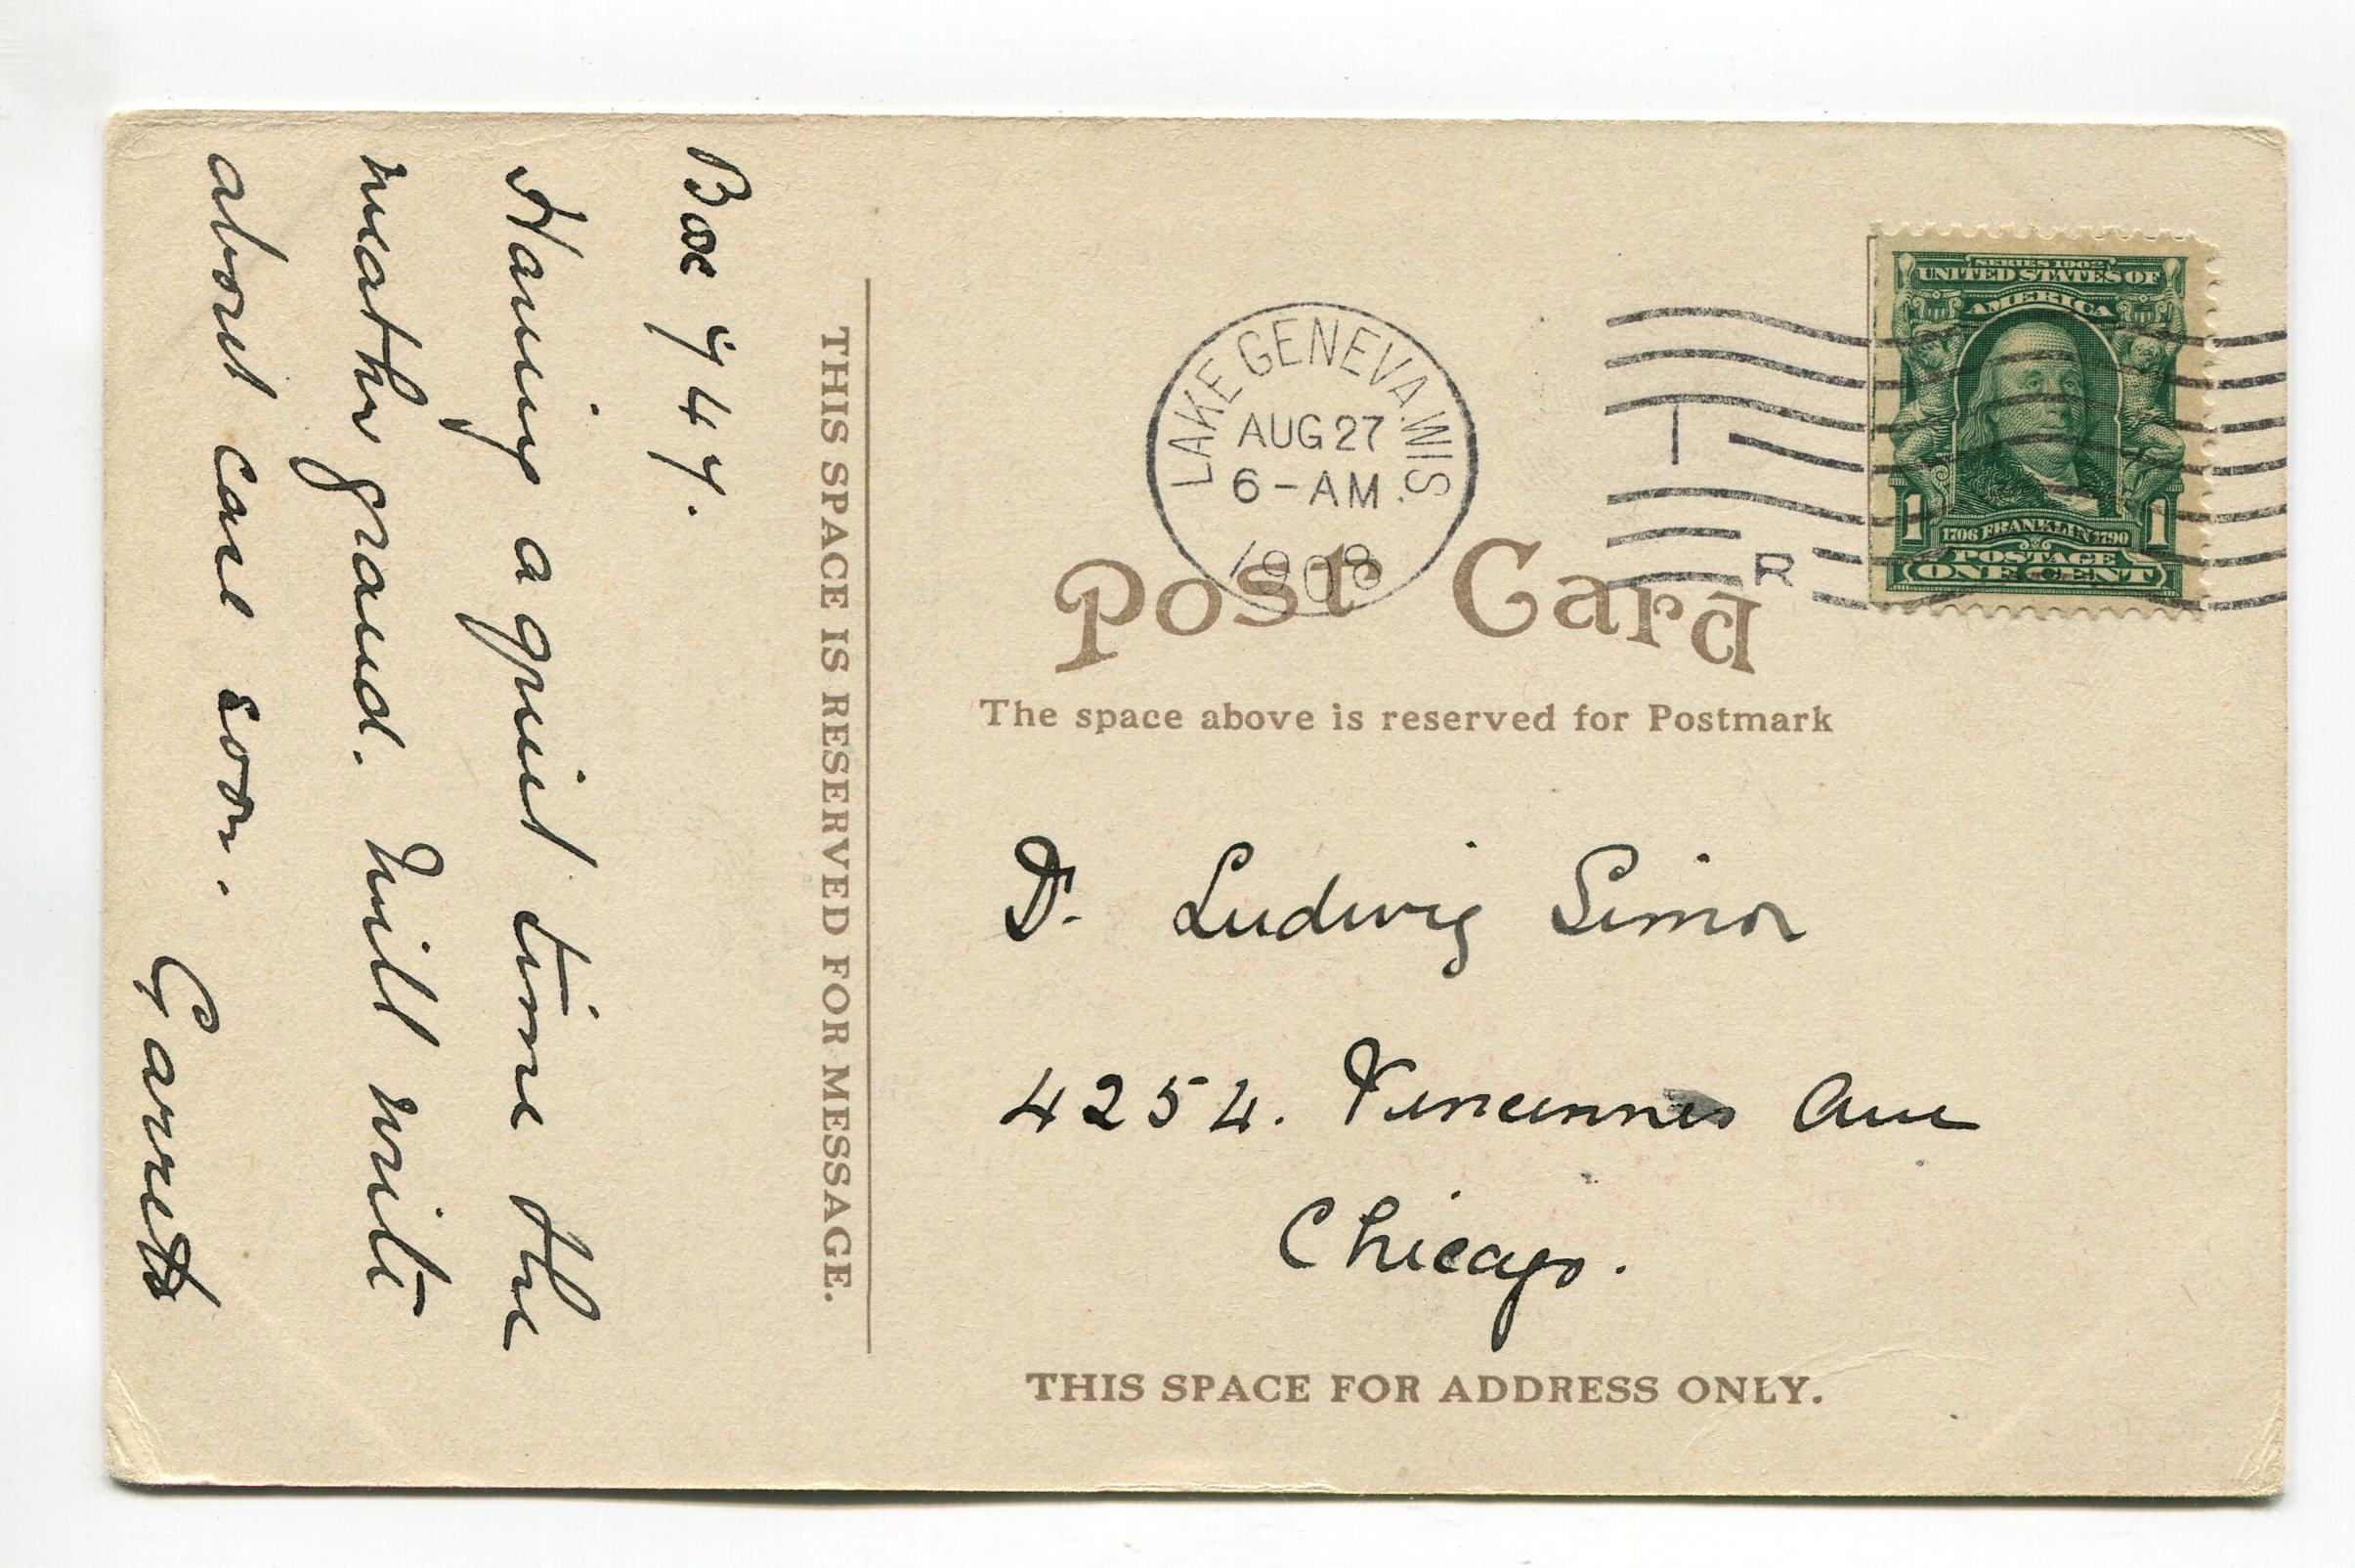 Box 747.
Having a quiet time the
weather grand. Will write
about care soon.
Garrett
THIS SPACE IS RESERVED FOR MESSAGE.
LAKE GENEVA. WIS.
AUG 27
6-AM
1908
R
SERIES 1902
UNITED STATES OF
AMERICA
1 1
1706 FRANKLIN 1790
POSTAGE
ONE CENT
Post Card
The space above is reserved for Postmark
D. Ludwig Simon
4254. Vincennes Ave
Chicago.
THIS SPACE FOR ADDRESS ONLY.